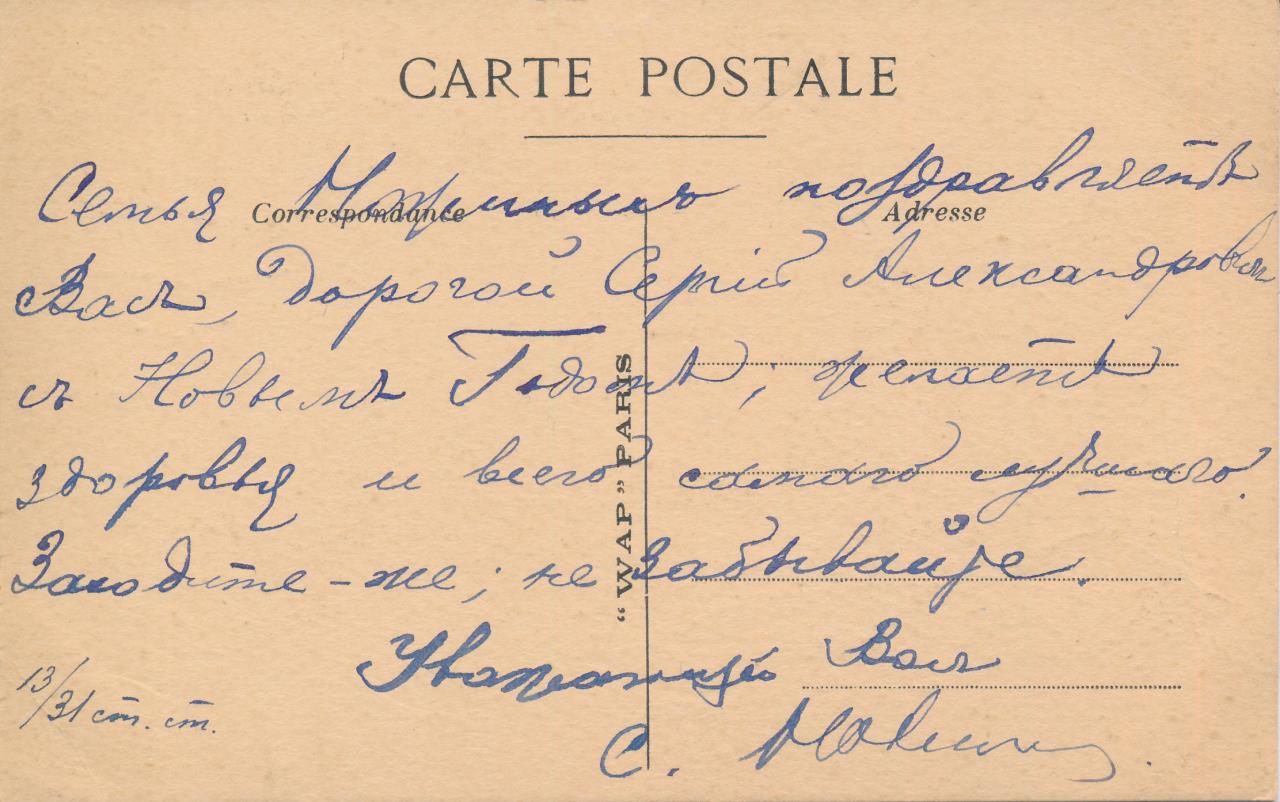 CARTE POSTALE
Correspondance
Adresse
Семья поздравляетъ
Васъ, дорогой Сергій Александровичъ
съ Новымъ Годомъ; желаетъ
здоровья и всего самаго лучшаго.
Заходите-же; не забывайте.
Уважающій Васъ
С.
13/31 ст. ст.
"WAP" PARIS